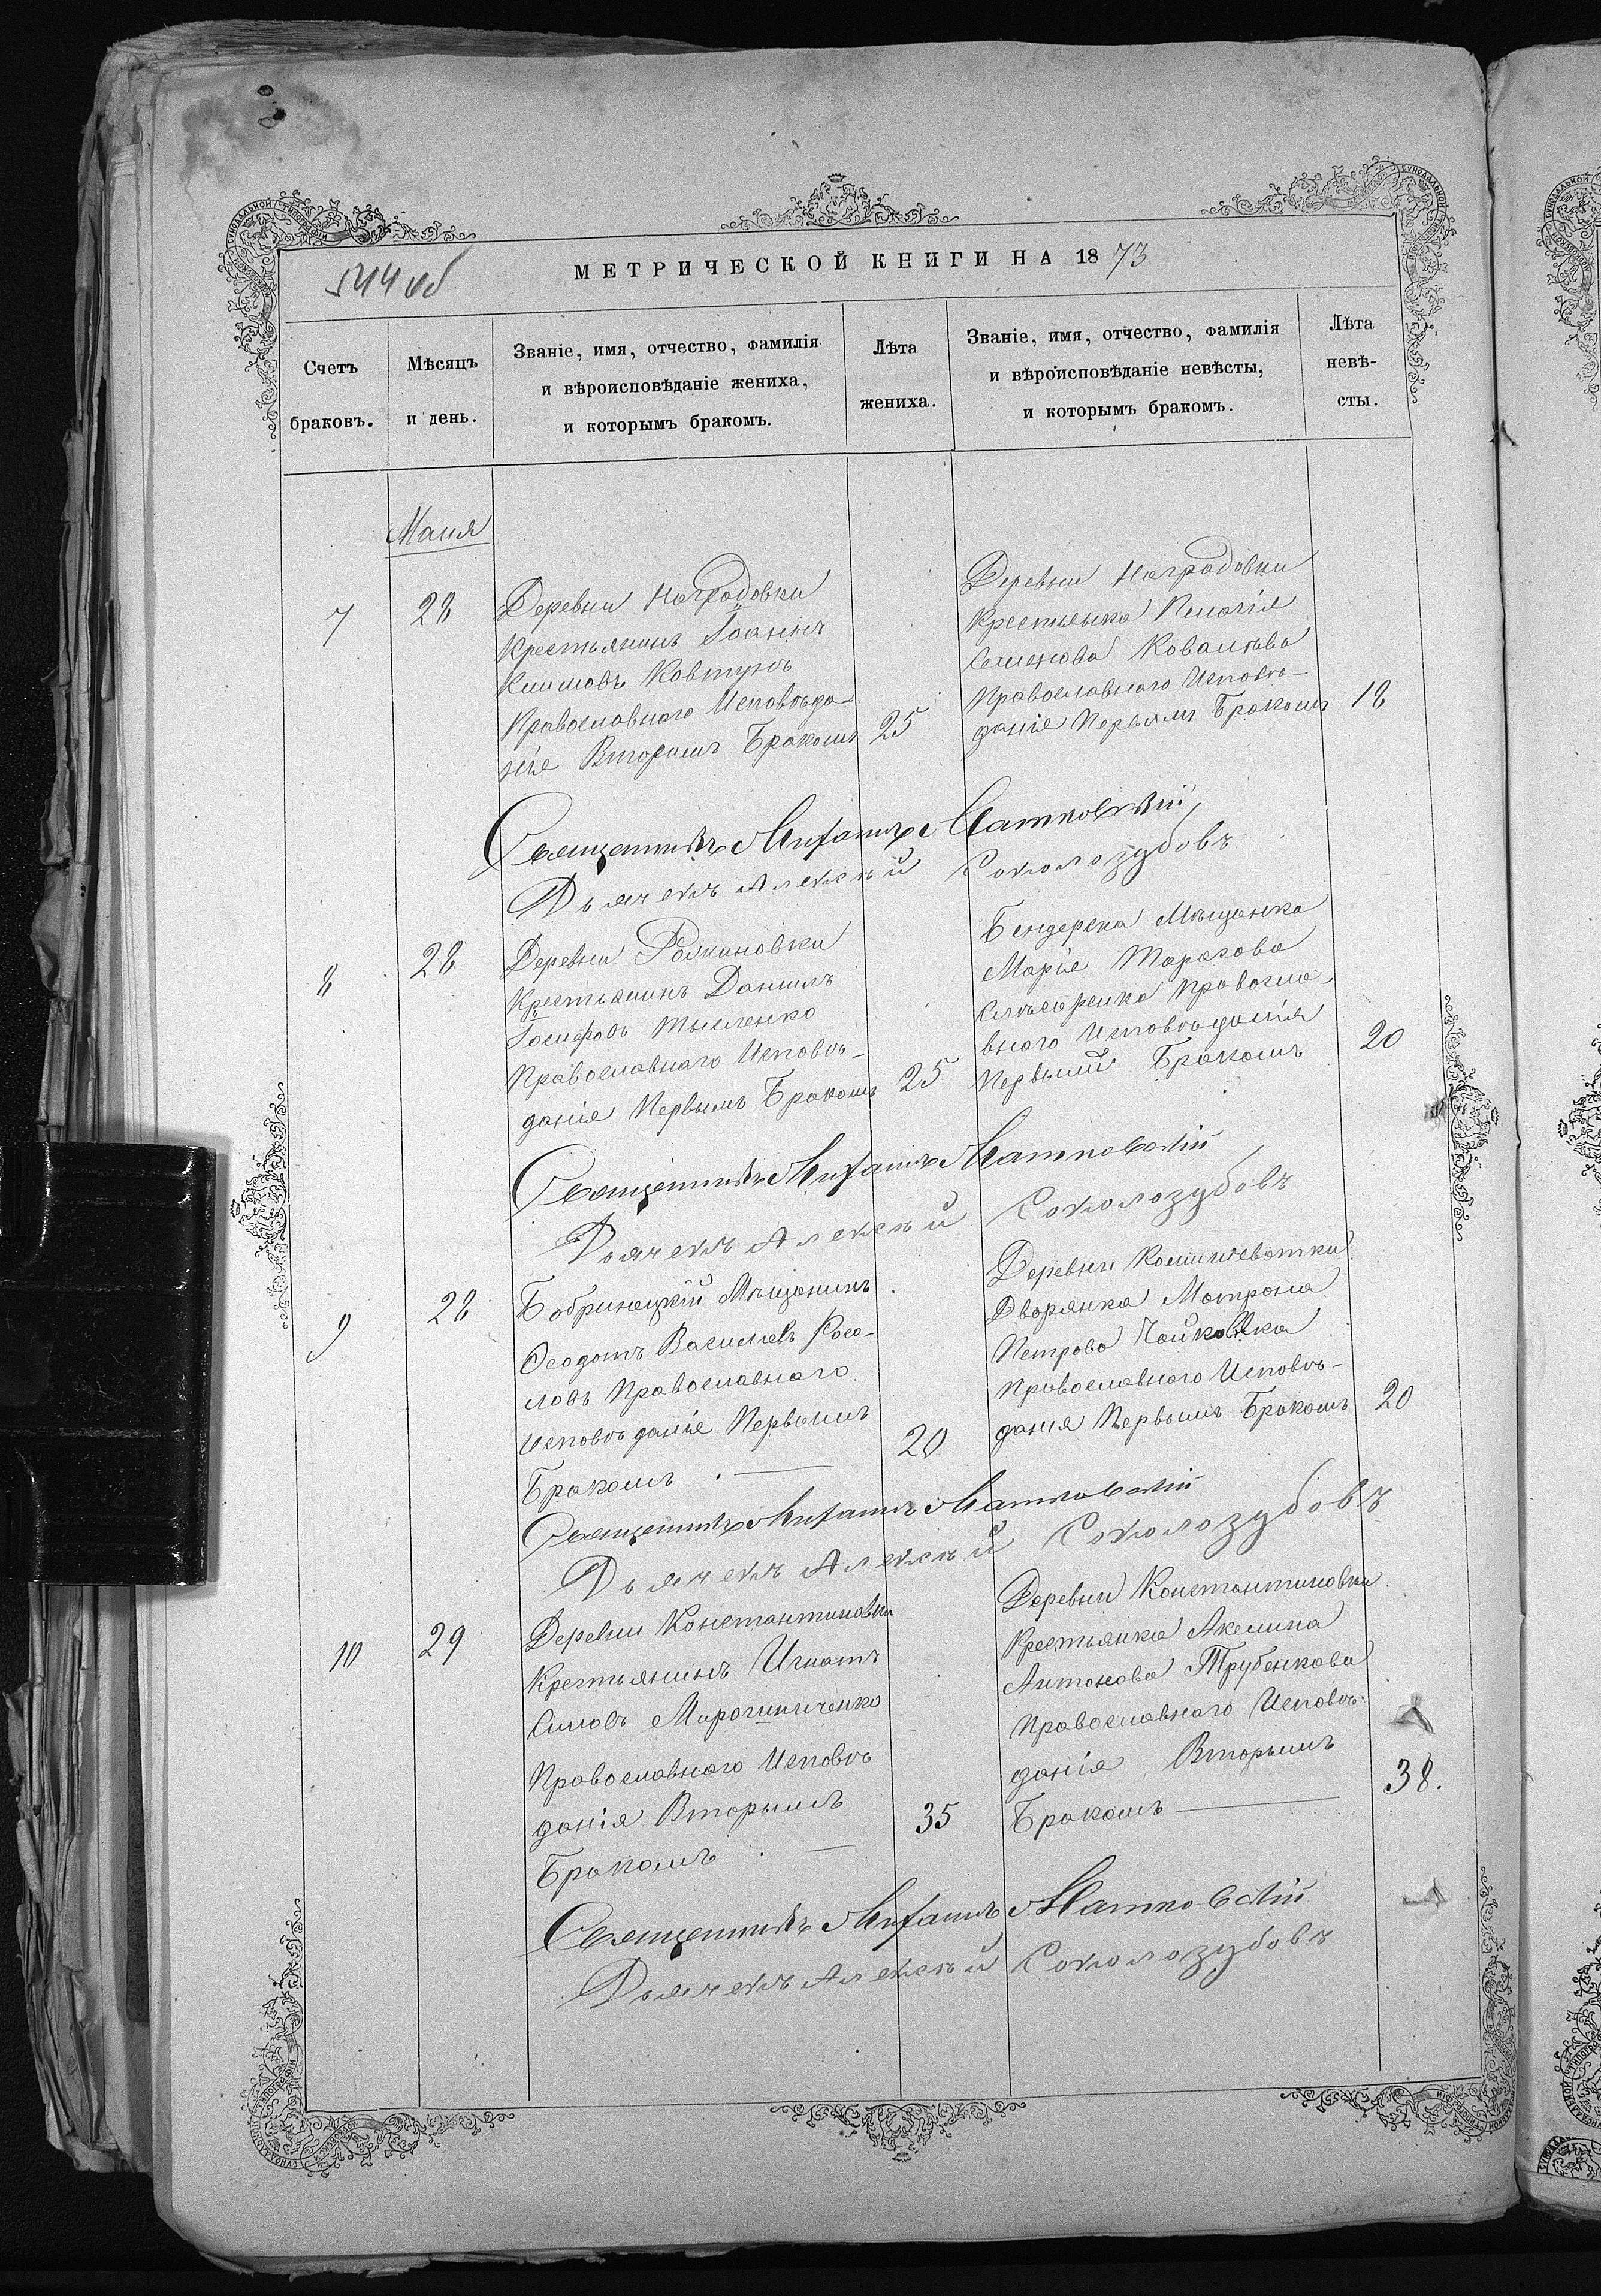 544 об
МЕТРИЧЕСКОЙ КНИГИ НА 1873
Счетъ браковъ.
Мѣсяцъ и день.
Званіе, имя, отчество, фамилія
и вѣроисповѣданіе жениха,
и которымъ бракомъ.
Лѣта
жениха.
Званіе, имя, отчество, фамилія
и вѣроисповѣданіе невѣсты,
и которымъ бракомъ.
Лѣта
невѣ-
сты.
Маия
7
28
Деревни Наградовки
Крестьянинъ Іоаннъ
Климовъ Ковтунъ
Православнаго Исповѣда-
нія Вторымъ Бракомъ
25
Деревни Наградовки
Крестьянка Пелагія
Семенова Ковалева
Православнаго Исповѣ-
данія Первымъ Бракомъ
18
Священникъ Михаилъ Матковскій
Дьячекъ Алексѣй Соколозубовъ
8
28
Деревни
Крестьянинъ Даниилъ
Іосифовъ Тысленко
Православнаго Исповѣ-
данія Первымъ Бракомъ
25
Бендерска Мѣщанка
Марія Тарасова
Слѣсаренка Правосла-
внаго Исповѣданія
Первымъ Бракомъ
20
Священникъ Михаилъ Матковскій
Дьячекъ Алексѣй Соколозубовъ
9
28
Бобринецкій Мѣщанинъ
Ѳеодотъ Василіевъ Косо-
ловъ Православнаго
Исповѣданіе Первымъ
Бракомъ
20
Деревни
Дворянка Матрона
Петрова Чайковска
Православнаго Исповѣ-
данія Первымъ Бракомъ
20
Священникъ Михаилъ Матковскій
Дьячекъ Алексѣй Соколозубовъ
10
29
Деревни Константиновки
Крестьянинъ Игнатъ
Симовъ Мирошниченко
Православнаго Исповѣ
данія Вторымъ
Бракомъ
35
Деревни Константиновки
Крестьянка Акелина
Антонова Трубенкова
Православнаго Исповѣ-
данія Вторымъ
Бракомъ
38.
Священникъ Михаилъ Матковскій
Дьячекъ Алексѣй Соколозубовъ